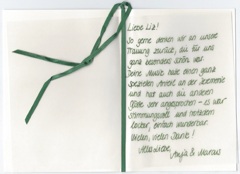 Liebe Lia!
So gerne denken wir an unsere
Trauung zurück, die für uns
ganz besonders schön war.
Deine Musik hatte einen ganz
speziellen Anteil an der Zeremonie
und hat auch die anderen
Gäste sehr angesprochen - es war
stimmungsvoll und trotzdem
locker, einfach wunderbar.
Vielen, vielen Dank!
Alles Liebe,
Anja & Marcus